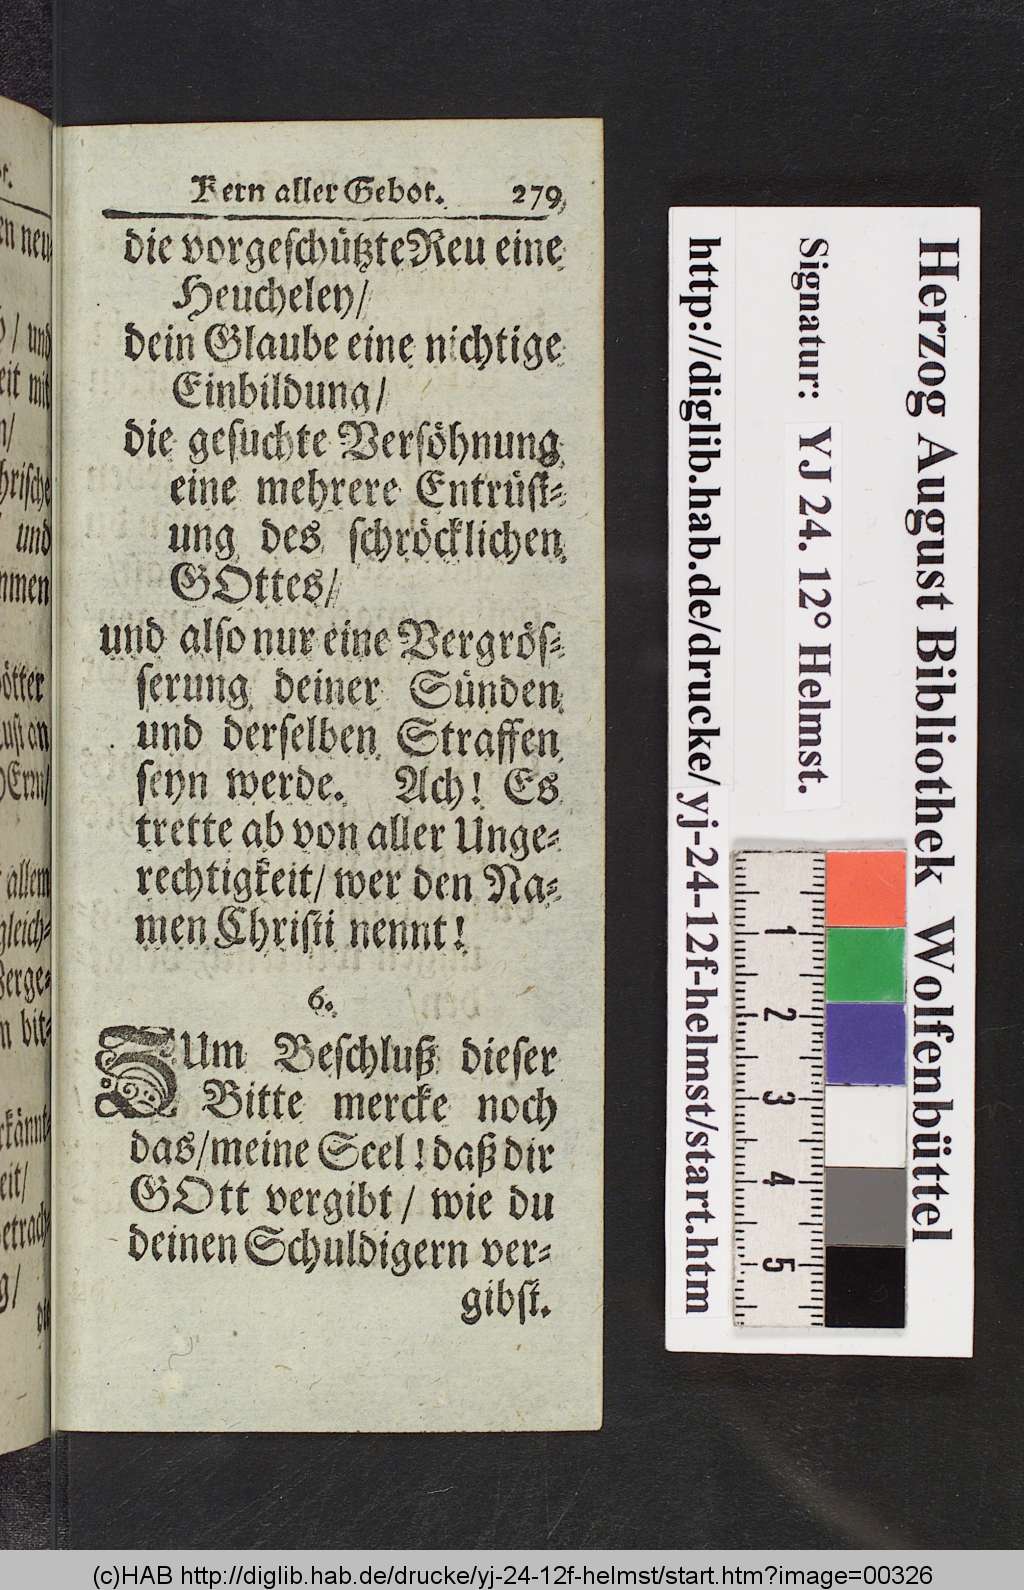 Kern aller Gebot. 279
die vorgeschützte Reu eine
Heucheley/
dein Glaube eine nichtige
Einbildung/
die gesuchte Versöhnung
eine mehrere Entrüst-
ung des schröcklichen
GOttes/
und also nur eine Vergrös-
serung deiner Sünden
und derselben Straffen
seyn werde. Ach! Es
trette ab von aller Unge-
rechtigkeit/ wer den Na-
men Christi nennt!
6.
ZUm Beschluß dieser
Bitte mercke noch
das/ meine Seel! daß dir
GOtt vergibt/ wie du
deinen Schuldigern ver-
gibst.
Herzog August Bibliothek Wolfenbüttel
Signatur: YJ 24. 12° Helmst.
http://diglib.hab.de/drucke/yj-24-12f-helmst/start.htm
1
2
3
4
5
(c)HAB http://diglib.hab.de/drucke/yj-24-12f-helmst/start.htm?image=00326